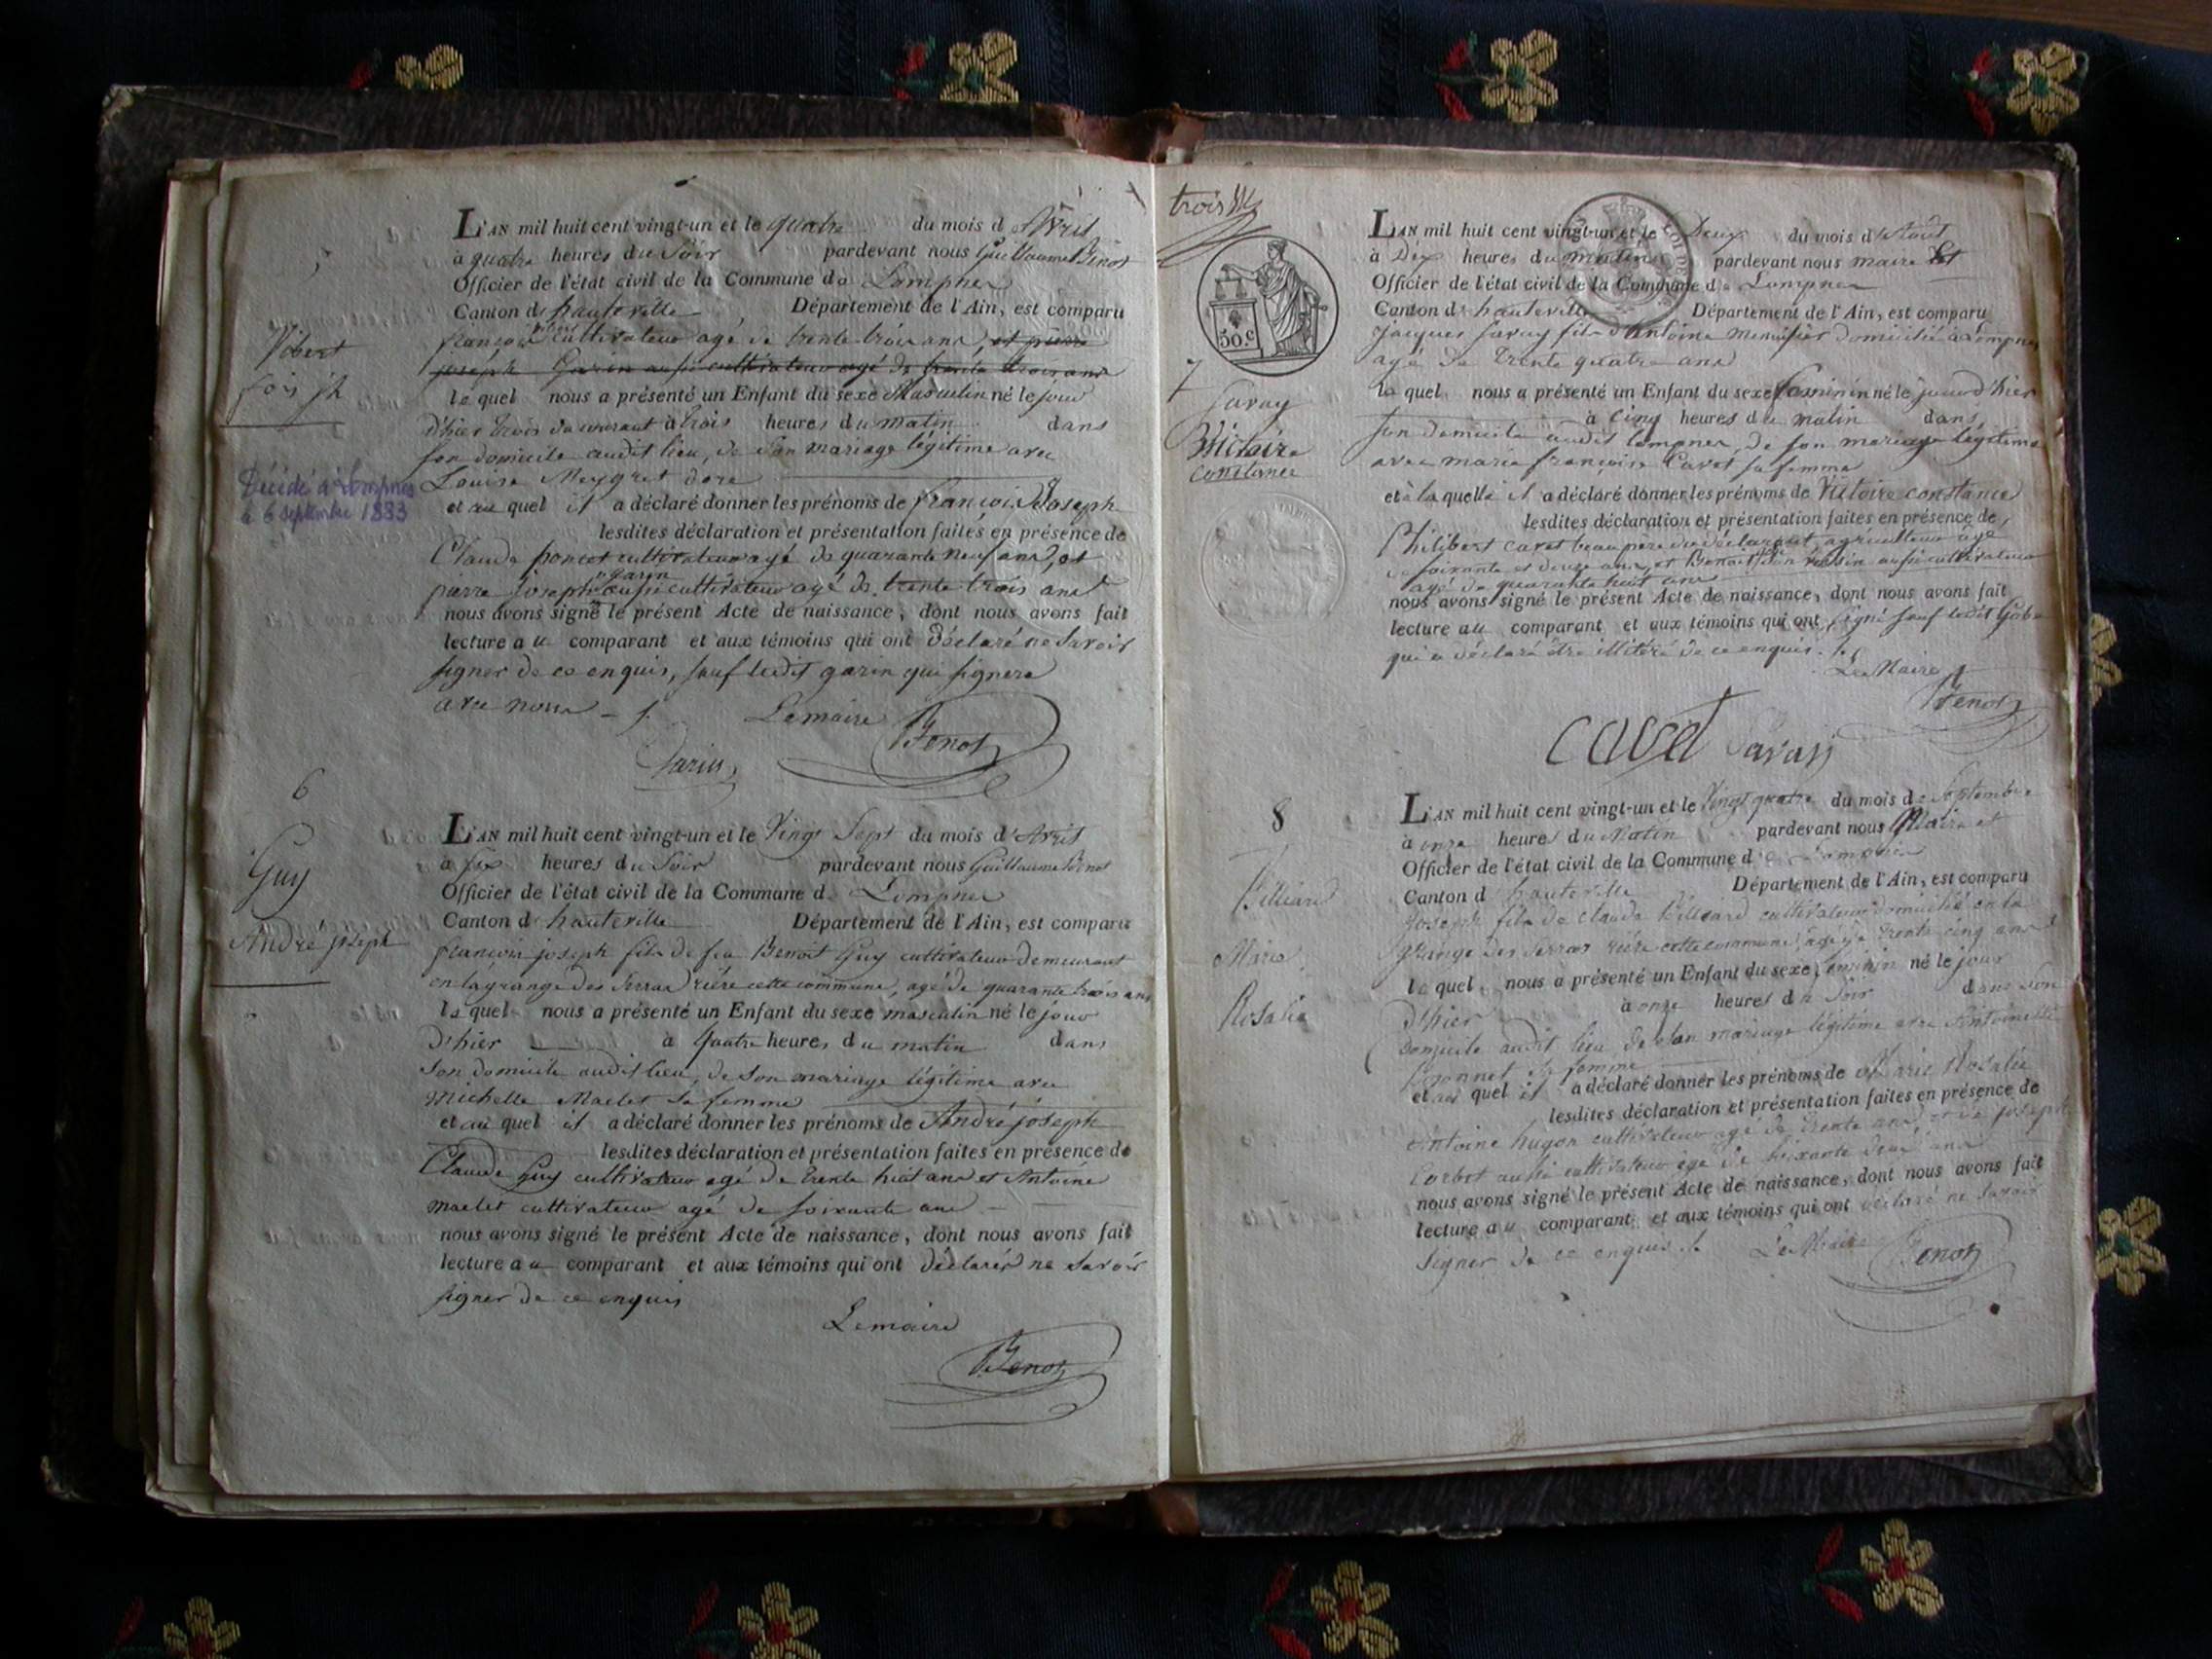 5
Vibert
fois jh
Décédé à Lompnes
le 6 septembre 1883
L'AN mil huit cent vingt-un et le quatre du mois d'Avril
à quatre heures du Soir pardevant nous Guillaume Benot
Officier de l'état civil de la Commune de Lompnes
Canton d'hauteville Département de l'Ain, est comparu
françois vibert cultivateur agé de trente trois ans, et pierre
joseph Garin aussi cultivateur agé de trente trois ans
lequel nous a présenté un Enfant du sexe Masculin né le jour
d'hier trois du courant à trois heures du matin dans
son domicile audit lieu, de son mariage légitime avec
Louise Meygret
et au quel il a déclaré donner les prénoms de françois Joseph
lesdites déclaration et présentation faites en présence de
Claude poncet cultivateur agé de quarante neuf ans, et
pierre joseph garin aussi cultivateur agé de trente trois ans
nous avons signé le présent Acte de naissance, dont nous avons fait
lecture au comparant et aux témoins qui ont déclaré ne savoir
signer de ce enquis, sauf ledit garin qui signera
avec nous
Lemaire Benot
Garin
6
Guy
André joseph
L'AN mil huit cent vingt-un et le Vingt Sept du mois d'Avril
à six heures du Soir pardevant nous Guillaume Benot
Officier de l'état civil de la Commune de Lompnes
Canton d'hauteville Département de l'Ain, est comparu
françois joseph fils de feu Benoit Guy cultivateur demeurant
en la grange des Serras rière cette commune, agé de quarante trois ans
lequel nous a présenté un Enfant du sexe masculin né le jour
d'hier à quatre heures du matin dans
son domicile audit lieu, de son mariage légitime avec
Michelle Maclet sa femme
et au quel il a déclaré donner les prénoms de André joseph
lesdites déclaration et présentation faites en présence de
Claude Guy cultivateur agé de trente huit ans et Antoine
maclet cultivateur agé de soixante ans
nous avons signé le présent Acte de naissance, dont nous avons fait
lecture au comparant et aux témoins qui ont déclarés ne savoir
signer de ce enquis
Lemaire
Benot
trois
50.c
7
Savay
Victoire
constance
L'AN mil huit cent vingt-un et le Deux du mois d'Août
à Dix heures du matin pardevant nous maire et
Officier de l'état civil de la Commune de Lompnes
Canton d'hauteville Département de l'Ain, est comparu
Jacques Savay fils d'Antoine menuisier domicilié à Lompnes
agé de trente quatre ans
lequel nous a présenté un Enfant du sexe féminin né le jour d'hier
à cinq heures du matin dans
son domicile audit Lompnes, de son mariage légitime
avec marie françoise Cavet sa femme
et à la quelle il a déclaré donner les prénoms de Victoire constance
lesdites déclaration et présentation faites en présence de
Philibert cavet beau père du déclarant agriculteur agé
de soixante et douze ans, et Benoit voisin aussi cultivateur
agé de quarante huit ans
nous avons signé le présent Acte de naissance, dont nous avons fait
lecture au comparant et aux témoins qui ont signé sauf ledit
qui a déclaré être illitéré de ce enquis
Le Maire
Benot
cavet Savay
8
Billiard
Marie
Rosalie
L'AN mil huit cent vingt-un et le Vingt quatre du mois de Septembre
à onze heures du Matin pardevant nous Maire et
Officier de l'état civil de la Commune de Lompnes
Canton d'hauteville Département de l'Ain, est comparu
Joseph fils de Claude Billiard cultivateur domicilié en la
grange des Serras rière cette commune, agé de trente cinq ans
lequel nous a présenté un Enfant du sexe féminin né le jour
d'hier à onze heures du Soir dans son
domicile audit lieu, de son mariage légitime avec Antoinette
sa femme
et au quel il a déclaré donner les prénoms de Marie Rosalie
lesdites déclaration et présentation faites en présence de
Antoine hugon cultivateur agé de trente ans, et de joseph
Corbet aussi cultivateur agé de soixante deux ans
nous avons signé le présent Acte de naissance, dont nous avons fait
lecture au comparant et aux témoins qui ont déclaré ne savoir
signer de ce enquis
Le Maire Benot